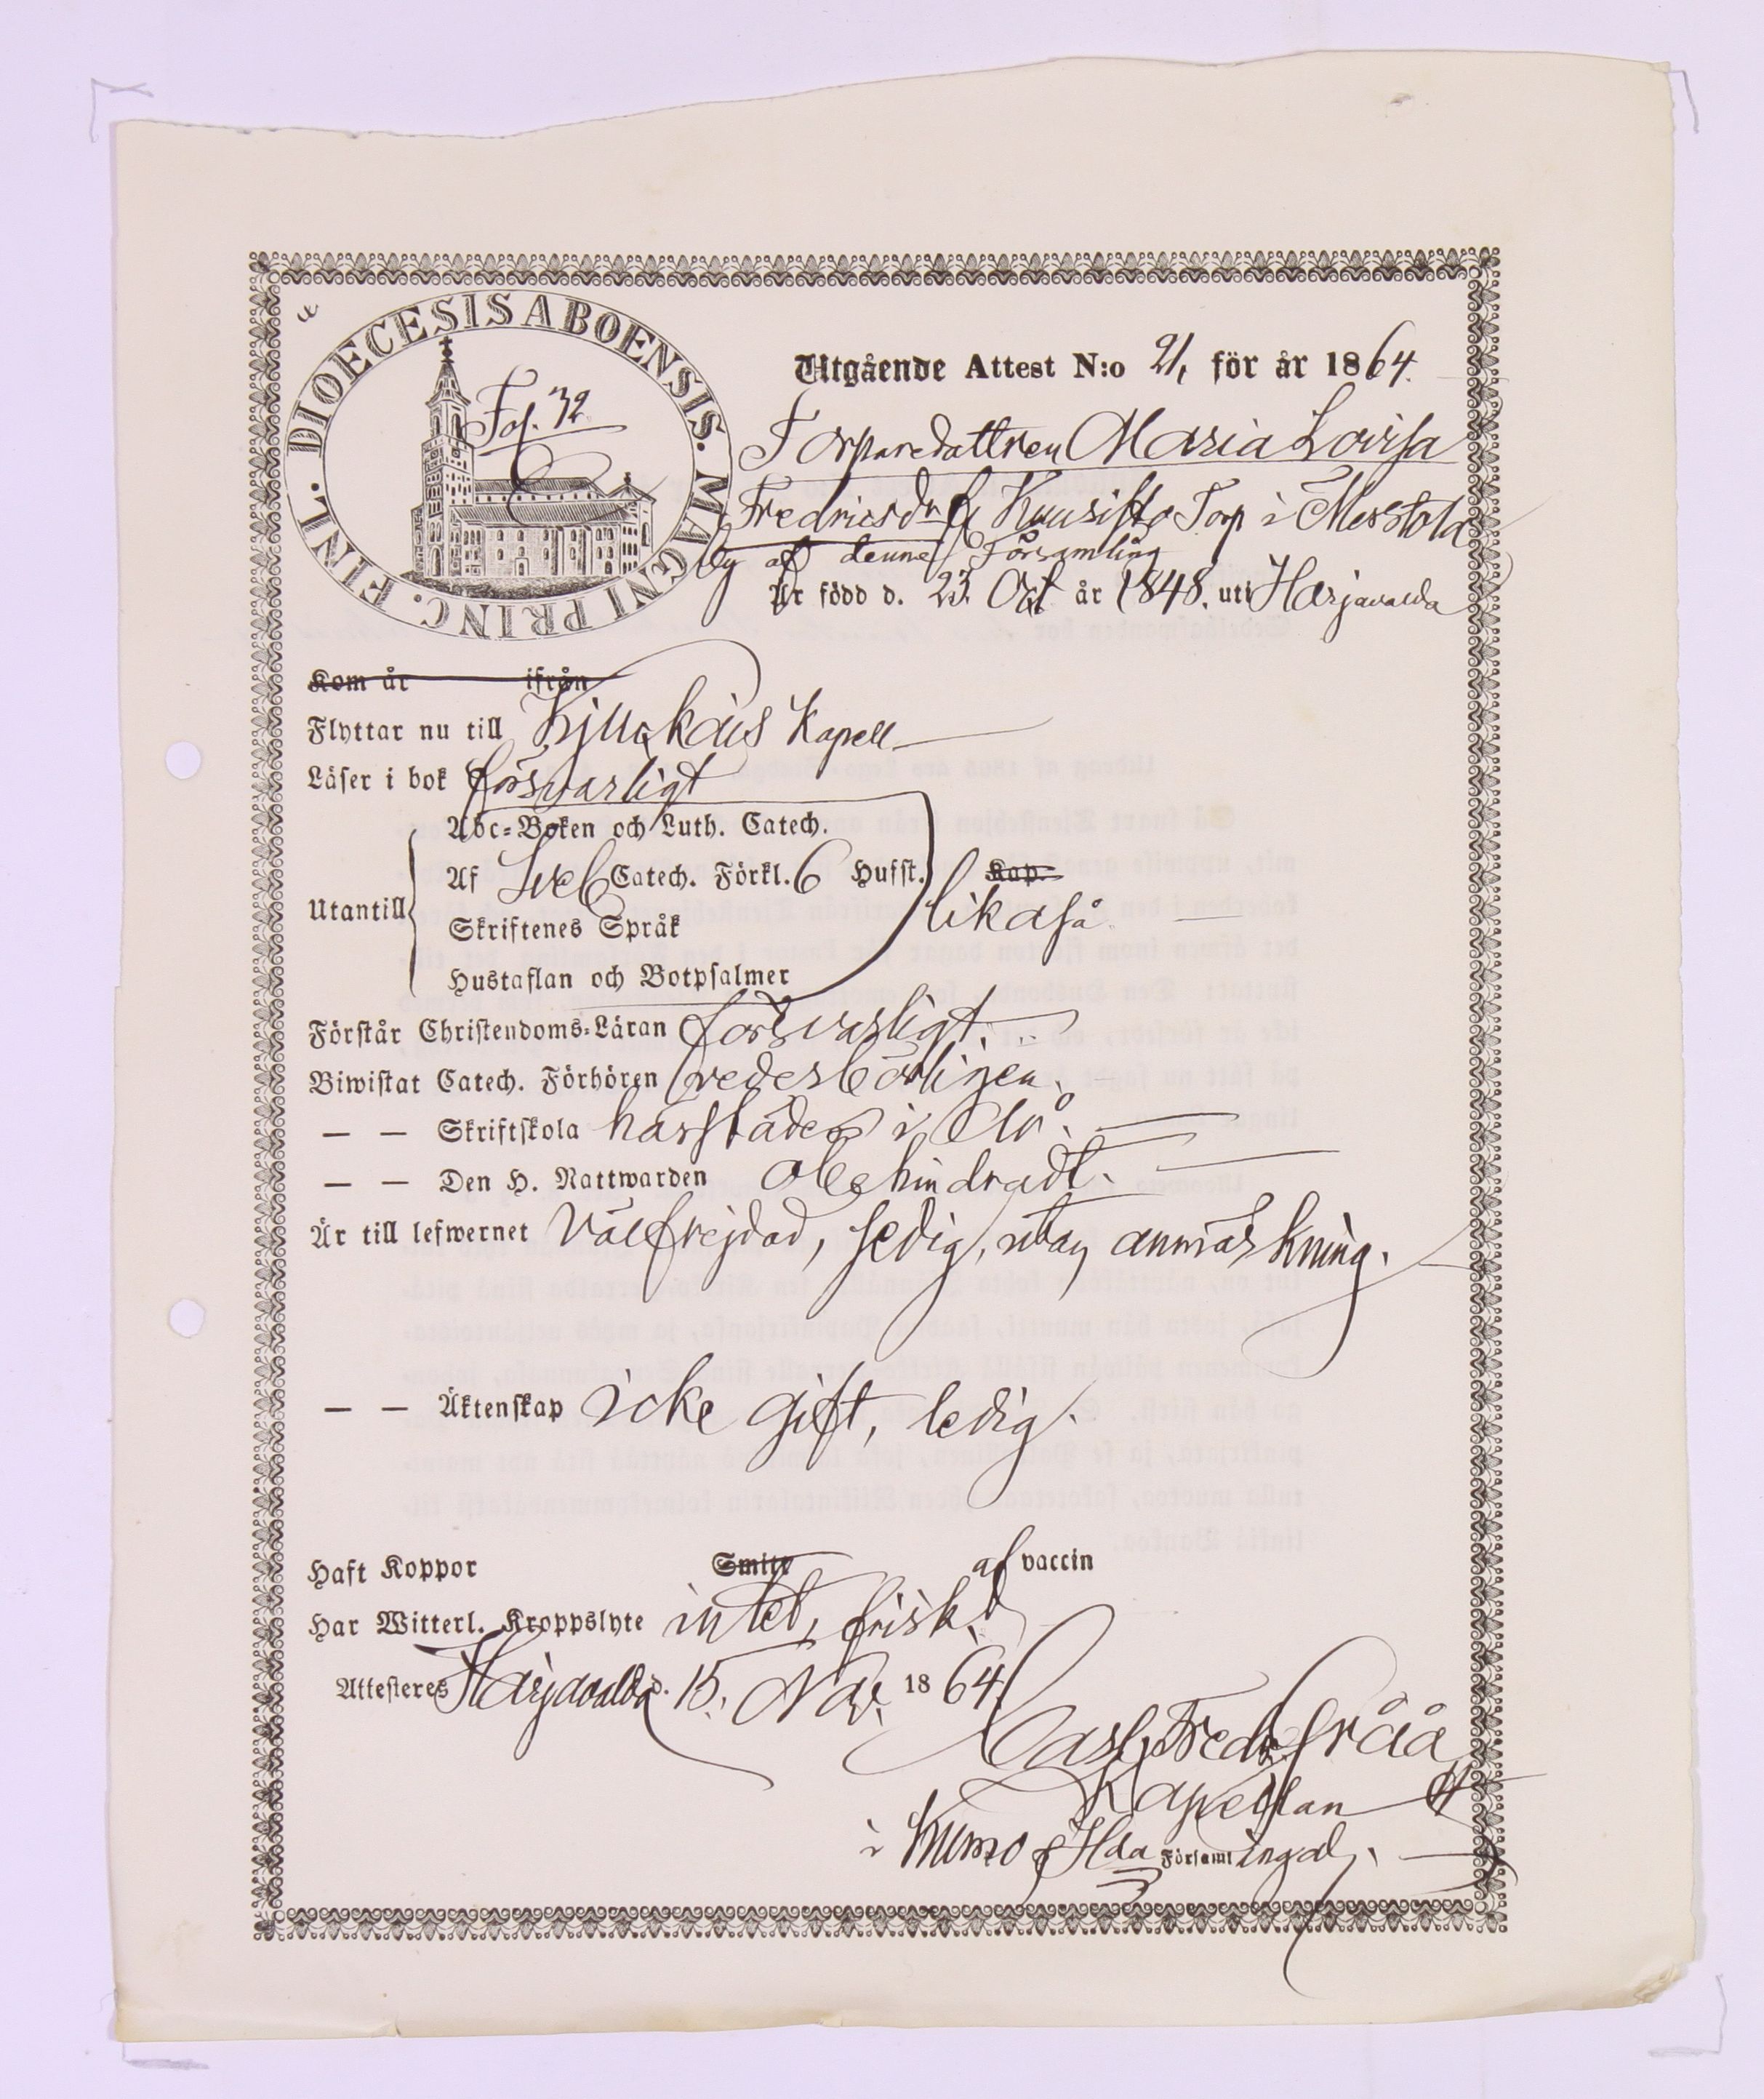 DIOECESIS ABOENSIS. MAGNI PRINC. FINL.
Fol. 32
Utgående Attest N:o 21, för år 1864.
Torparedottren Maria Lovisa
Fredricsdr fr Kuusisto Torp i Merstola
By af denne Församling
Är född d. 23. Oct år 1848. uti Harjavalda
Kom år ifrån
Flyttar nu till Kjukais Kapell
Läser i bok försvarligt
Abc-Boken och Luth. Catech.
Utantill Af Sveb Catech. Förkl. 6 Hufst. Kap. likaså
Skriftenes Språk
Hustaflan och Botpsalmer
Förstår Christendoms-Läran försvarligt.
Biwistat Catech. Förhören vederbörligen.
— — Skriftskola härstädes i år.
— — Den H. Nattwarden obehindradt.
Är till lefwernet välfrejdad, ledig, utan anmärkning.
— — Äktenskap icke gift, ledig.
Haft Koppor Smitt af vaccin
Har Witterl. Kroppslyte intet, frisk.
Attesteres Harjavalda d. 15. Nov. 1864.
Carl Fredr
Kapellan
i Kumo & Hda Församlingar.